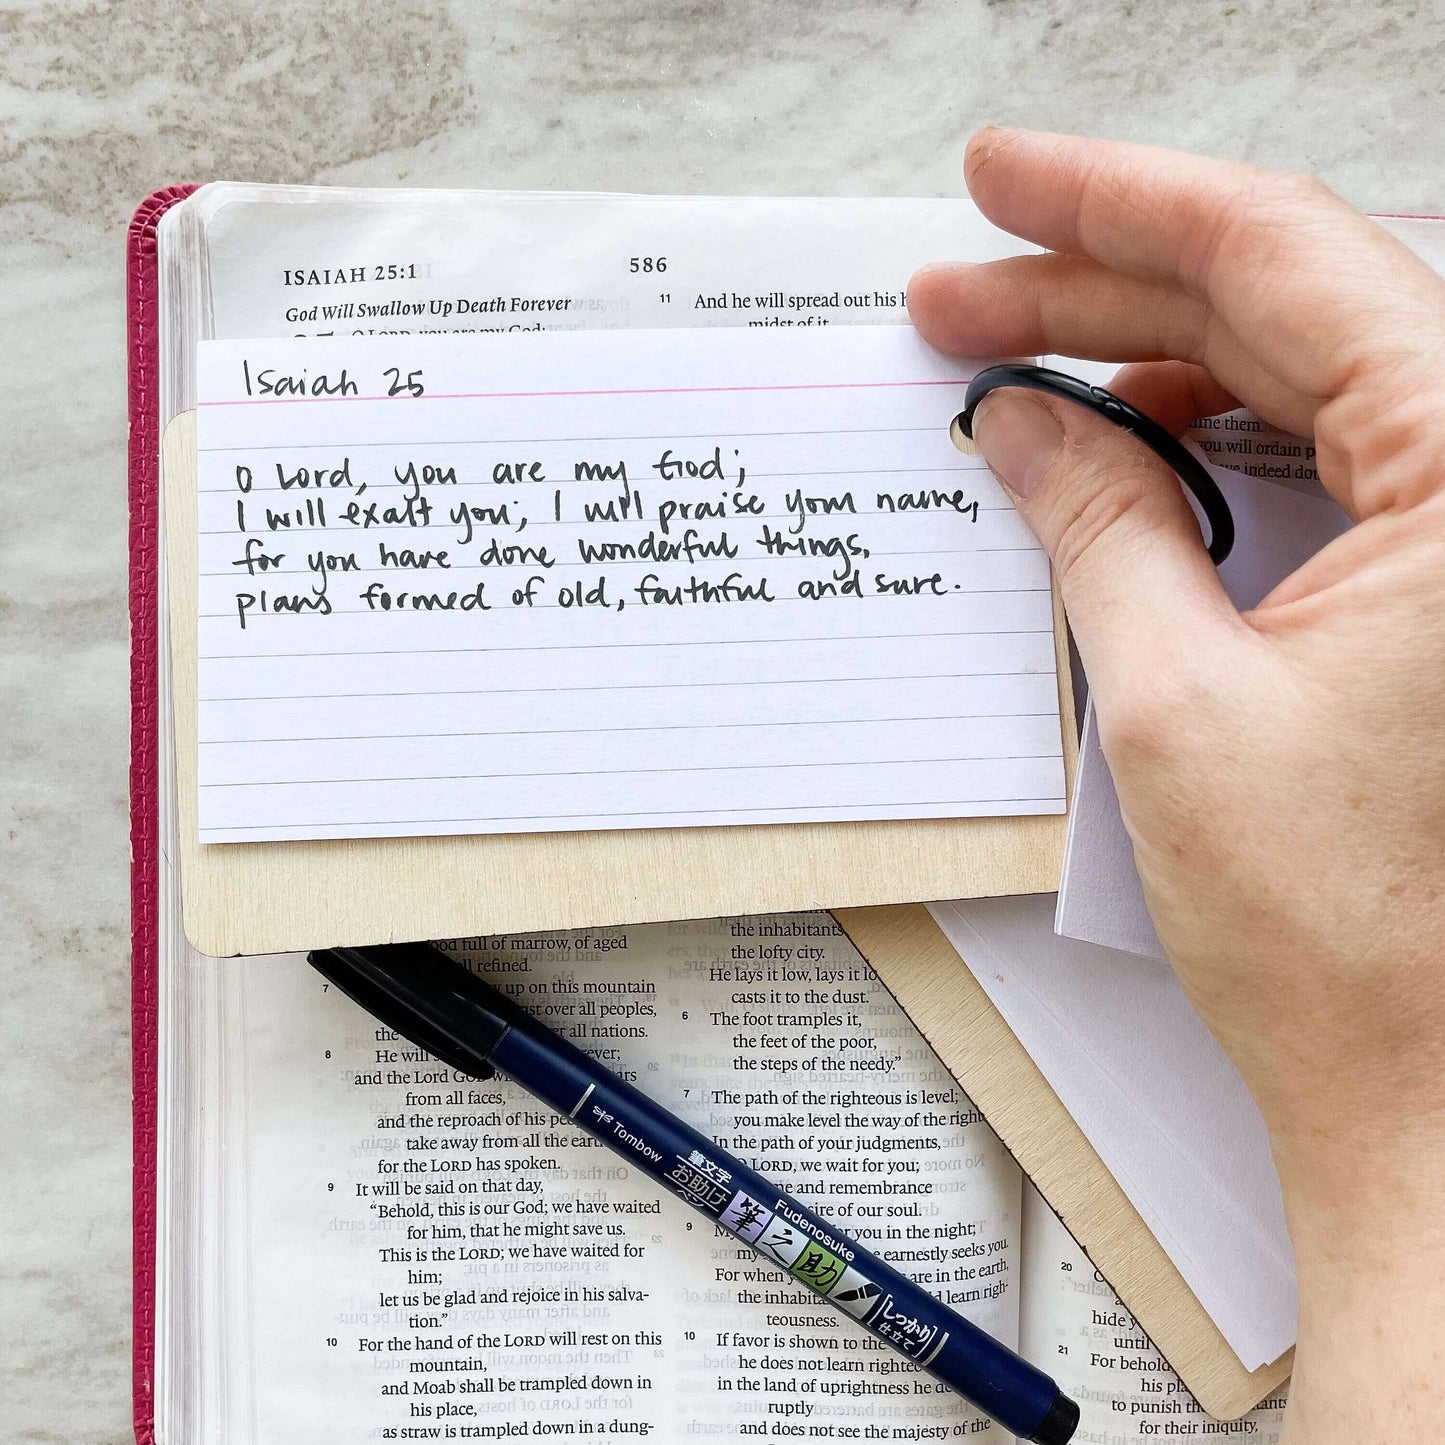 ISAIAH 25:1
586
God Will Swallow Up Death Forever
O LORD, you are my God;
11 And he will spread out his
midst of it
Isaiah 25
O Lord, you are my God;
I will exalt you; I will praise your name,
for you have done wonderful things,
plans formed of old, faithful and sure.
ume them.
you will ordain
indeed
full of marrow, of aged
refined.
7 up on this mountain
over all peoples,
the
all nations.
8 He will
and the Lord GOD
from all faces,
and the reproach of his
take away from all the
for the LORD has spoken.
9 It will be said on that day,
“Behold, this is our God; we have waited
for him, that he might save us.
This is the LORD; we have waited for
him;
let us be glad and rejoice in his salva-
tion.”
10 For the hand of the LORD will rest on this
mountain,
and Moab shall be trampled down in
his place,
as straw is trampled down in a dung-
the inhabitants
the lofty city.
He lays it low, lays it
casts it to the dust.
6 The foot tramples it,
the feet of the poor,
the steps of the needy.”
7 The path of the righteous is level;
you make level the way of the
In the path of your judgments,
O LORD, we wait for you;
and remembrance
of our soul.
9 you in the night;
my
earnestly seeks you.
For when
are in the earth,
the
learn righ-
teousness.
10 If favor is shown to the
he does not learn
in the land of uprightness he
ruptly
and does not see the majesty of the
20
hide
until
21 For behold
his
to punish the
for their iniquity,
Tombow
筆文字
お助け
ペン
筆之助
Fudenosuke
[しっかり]
仕立て